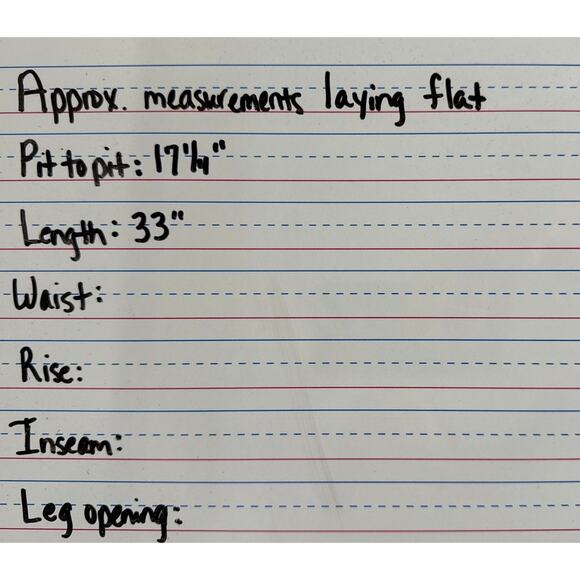 Approx. measurements laying flat
Pit to pit: 17 1/4"
Length: 33"
Waist:
Rise:
Inseam:
Leg opening: